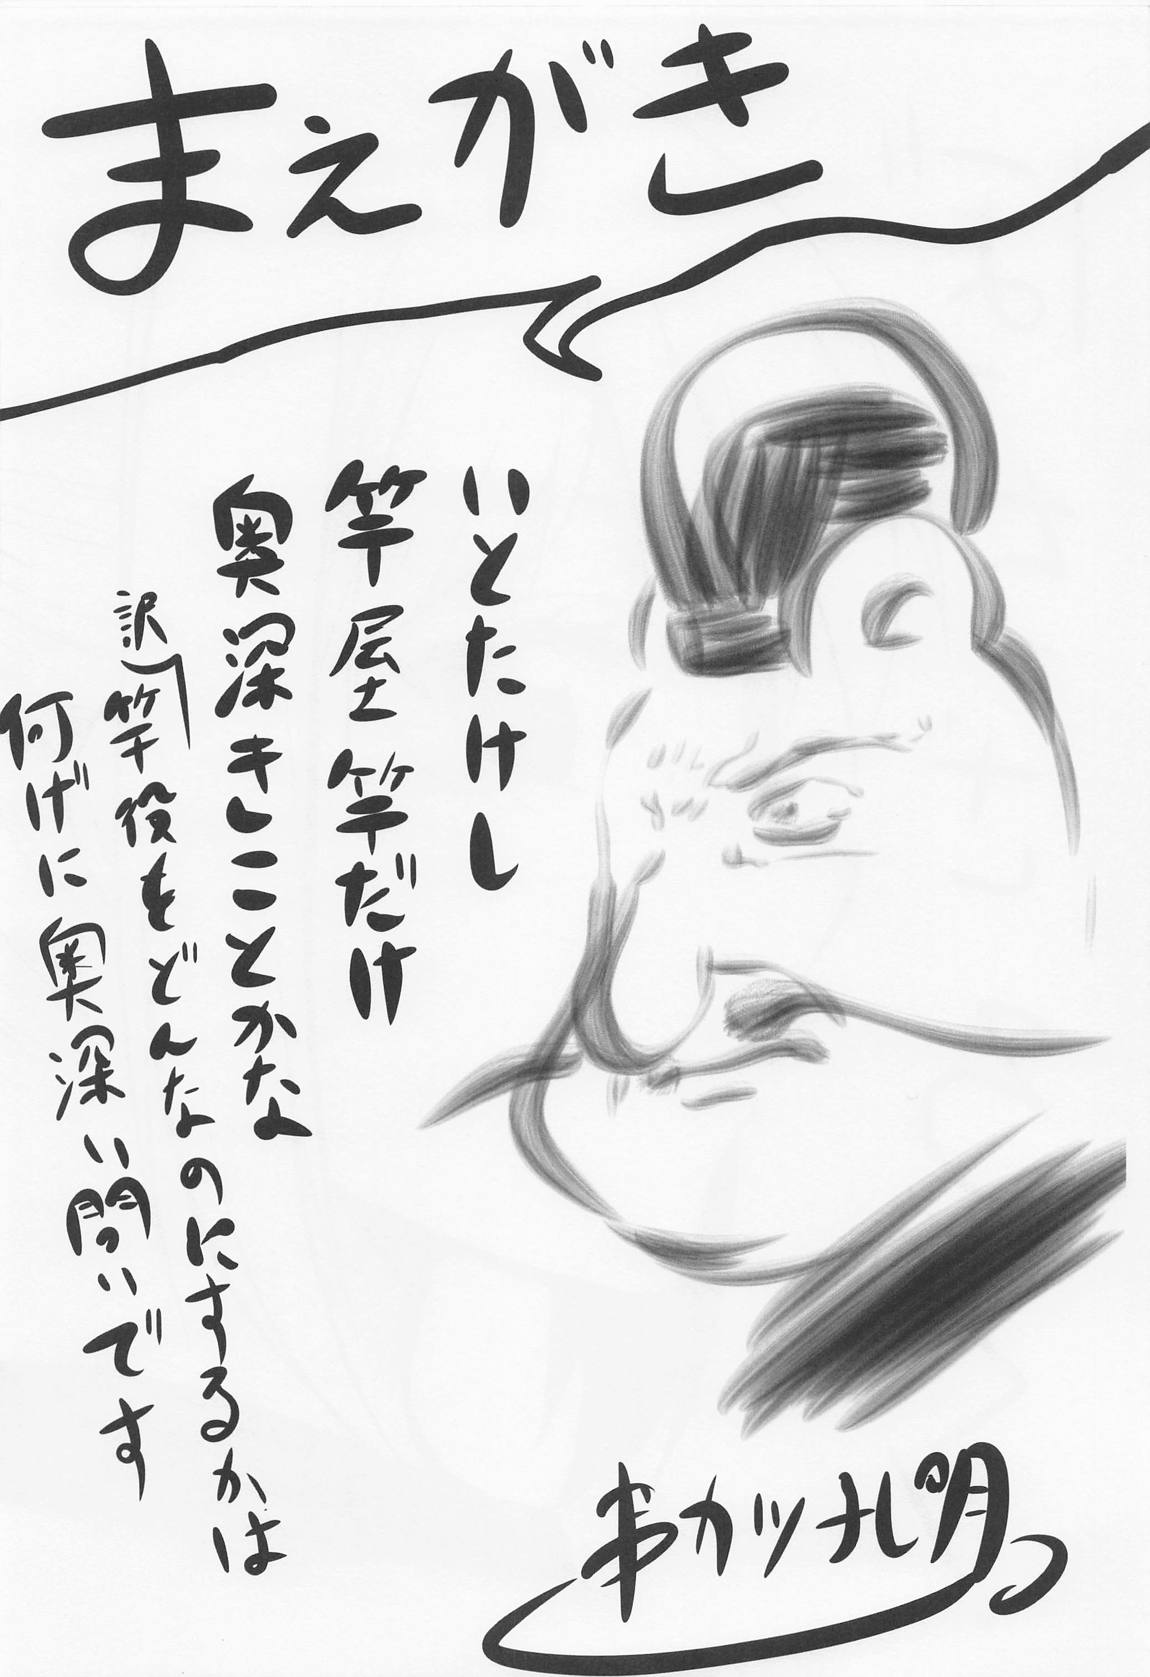 まえがき
いとたけし
竿屋竿だけ
奥深きことかな
訳
竿役をどんなのにするかは
何げに奥深い問いです
串カツ孔明